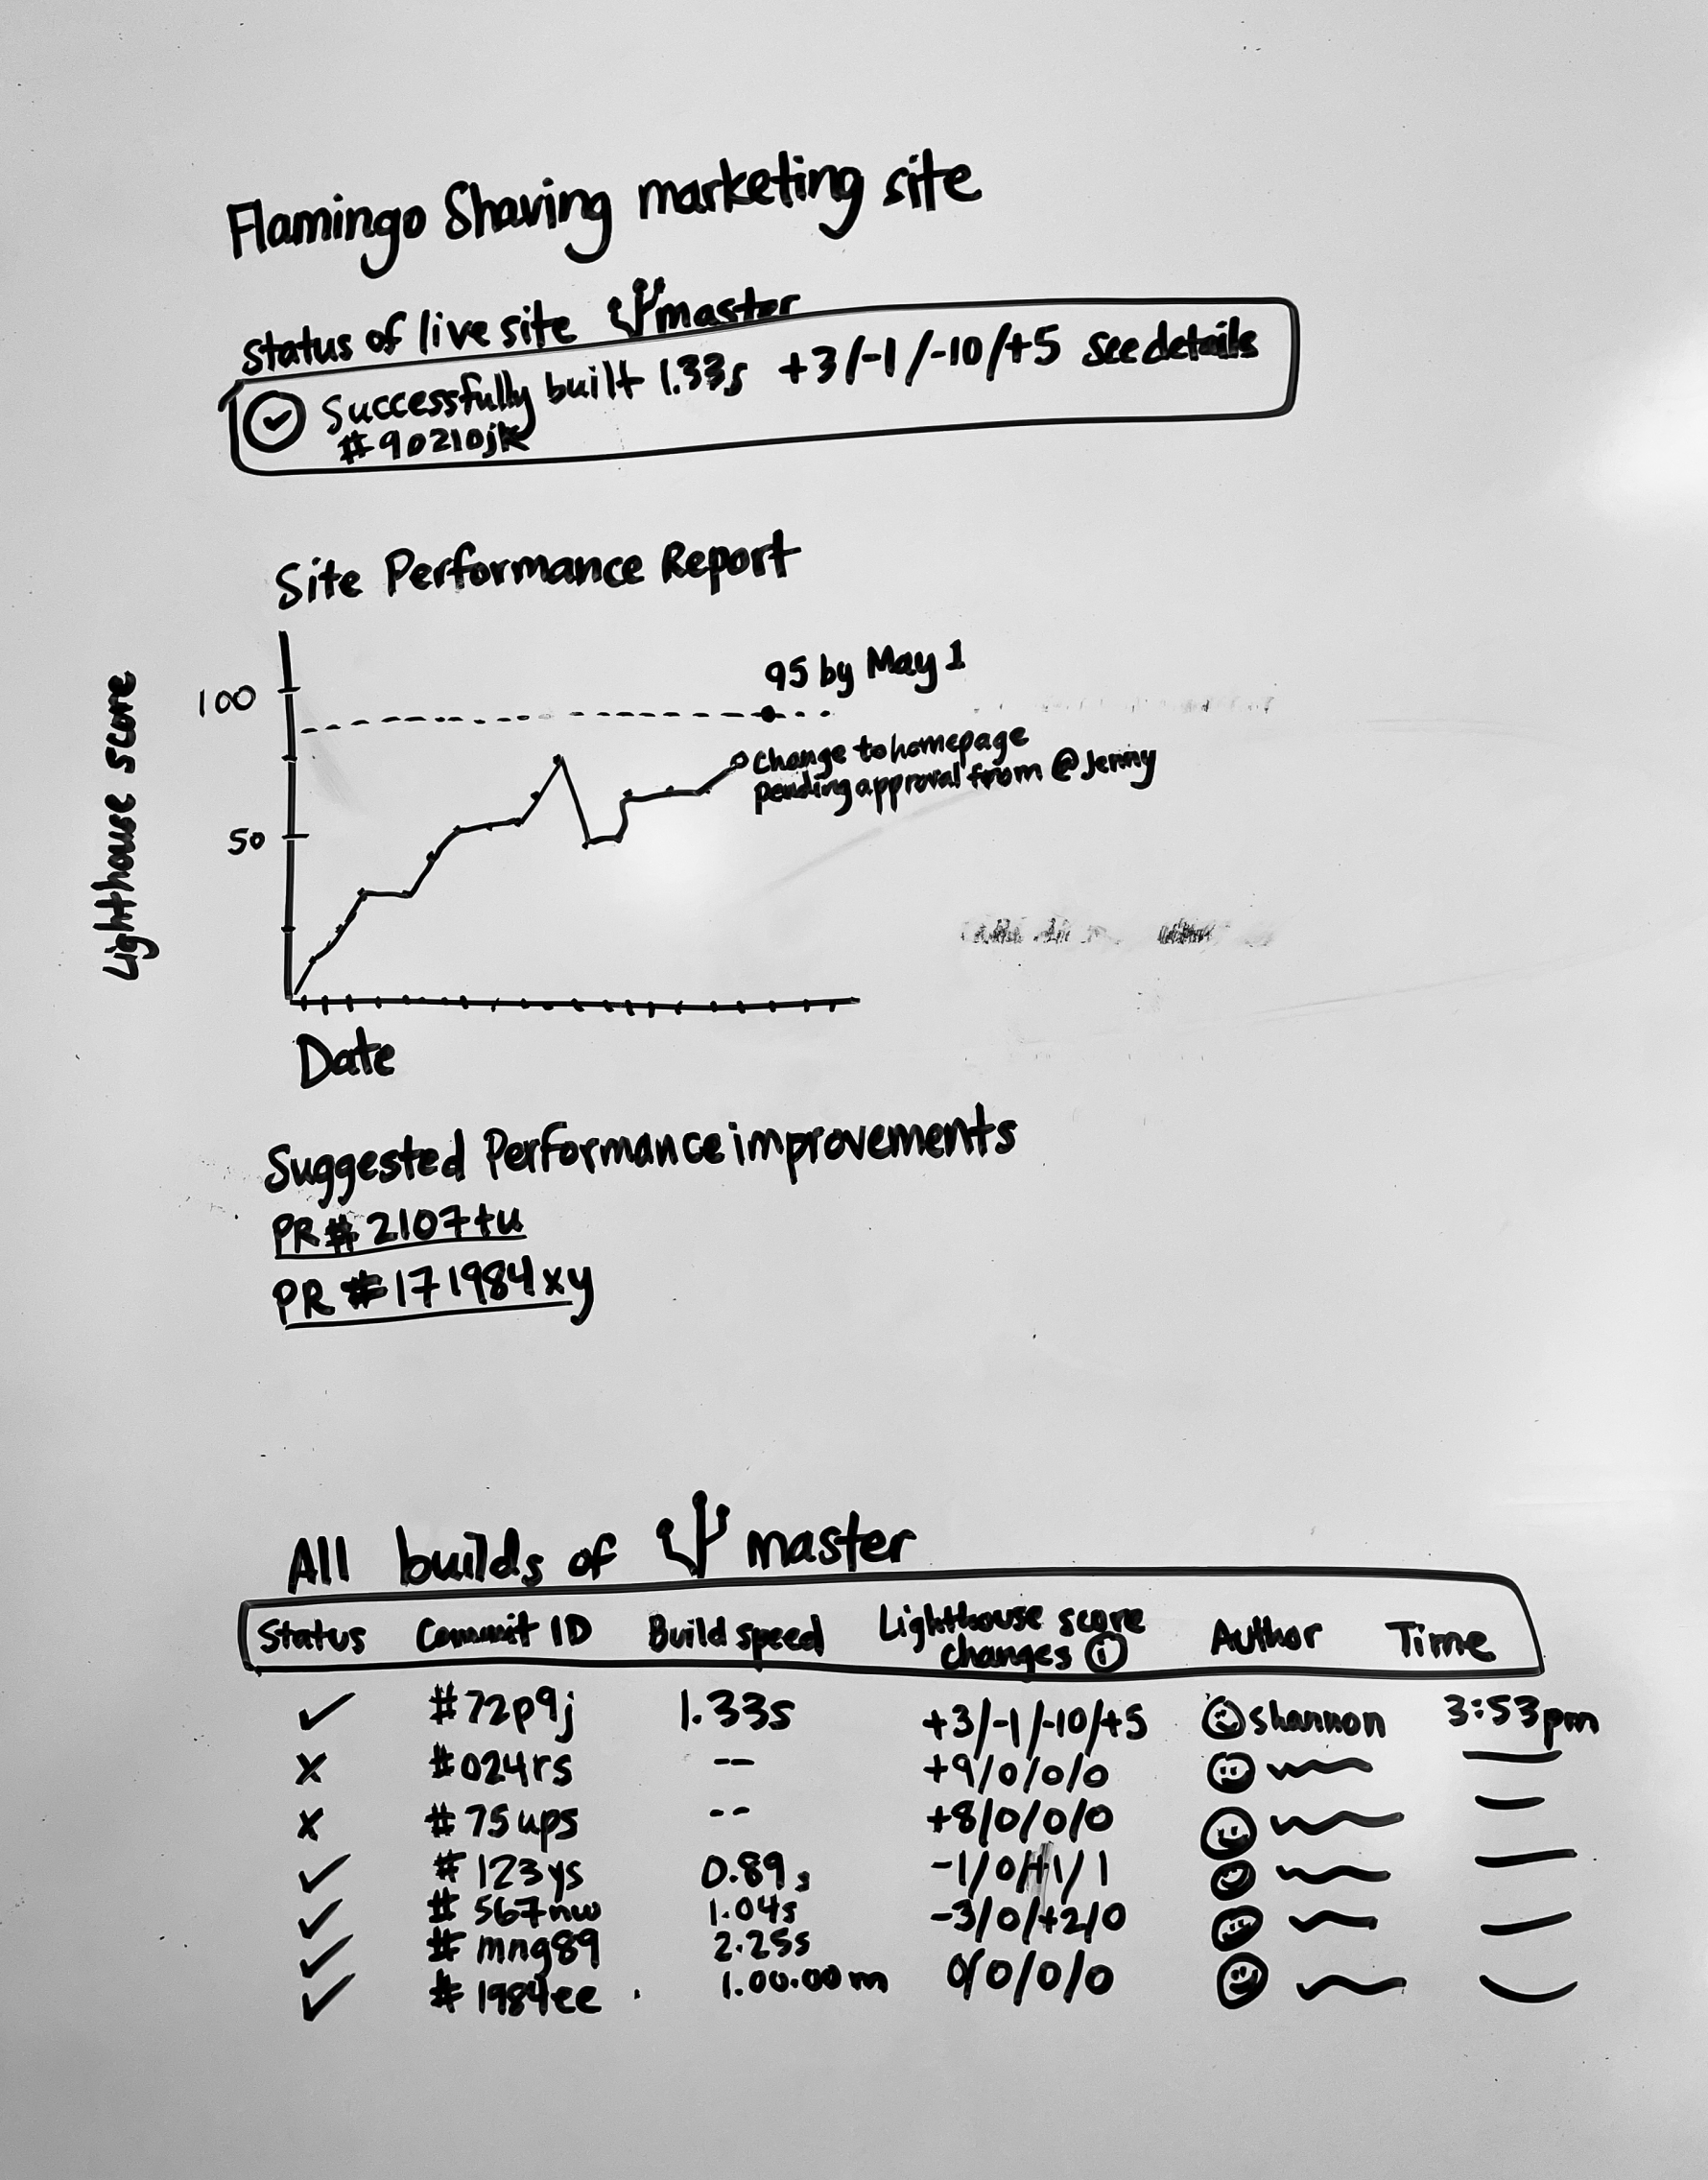 Flamingo Shaving marketing site
Status of live site master
Successfully built 1.33s +3/-1/-10/+5 see details
#90210jk
Site Performance Report
Lighthouse score
100
50
95 by May 1
Change to homepage
pending approval from @Jenny
Date
Suggested Performance improvements
PR# 2107tu
PR #171984xy
All builds of master
Status Commit ID Build speed Lighthouse score changes i Author Time
✓ #72p9j 1.33s +3/-1/-10/+5 shannon 3:53pm
x #024rs -- +9/0/0/0
x #75ups -- +8/0/0/0
✓ #123ys 0.89s -1/0/+1/1
✓ #567nw 1.04s -3/0/+2/0
✓ #mng89 2.25s
✓ #1984ee 1.00.00m 0/0/0/0